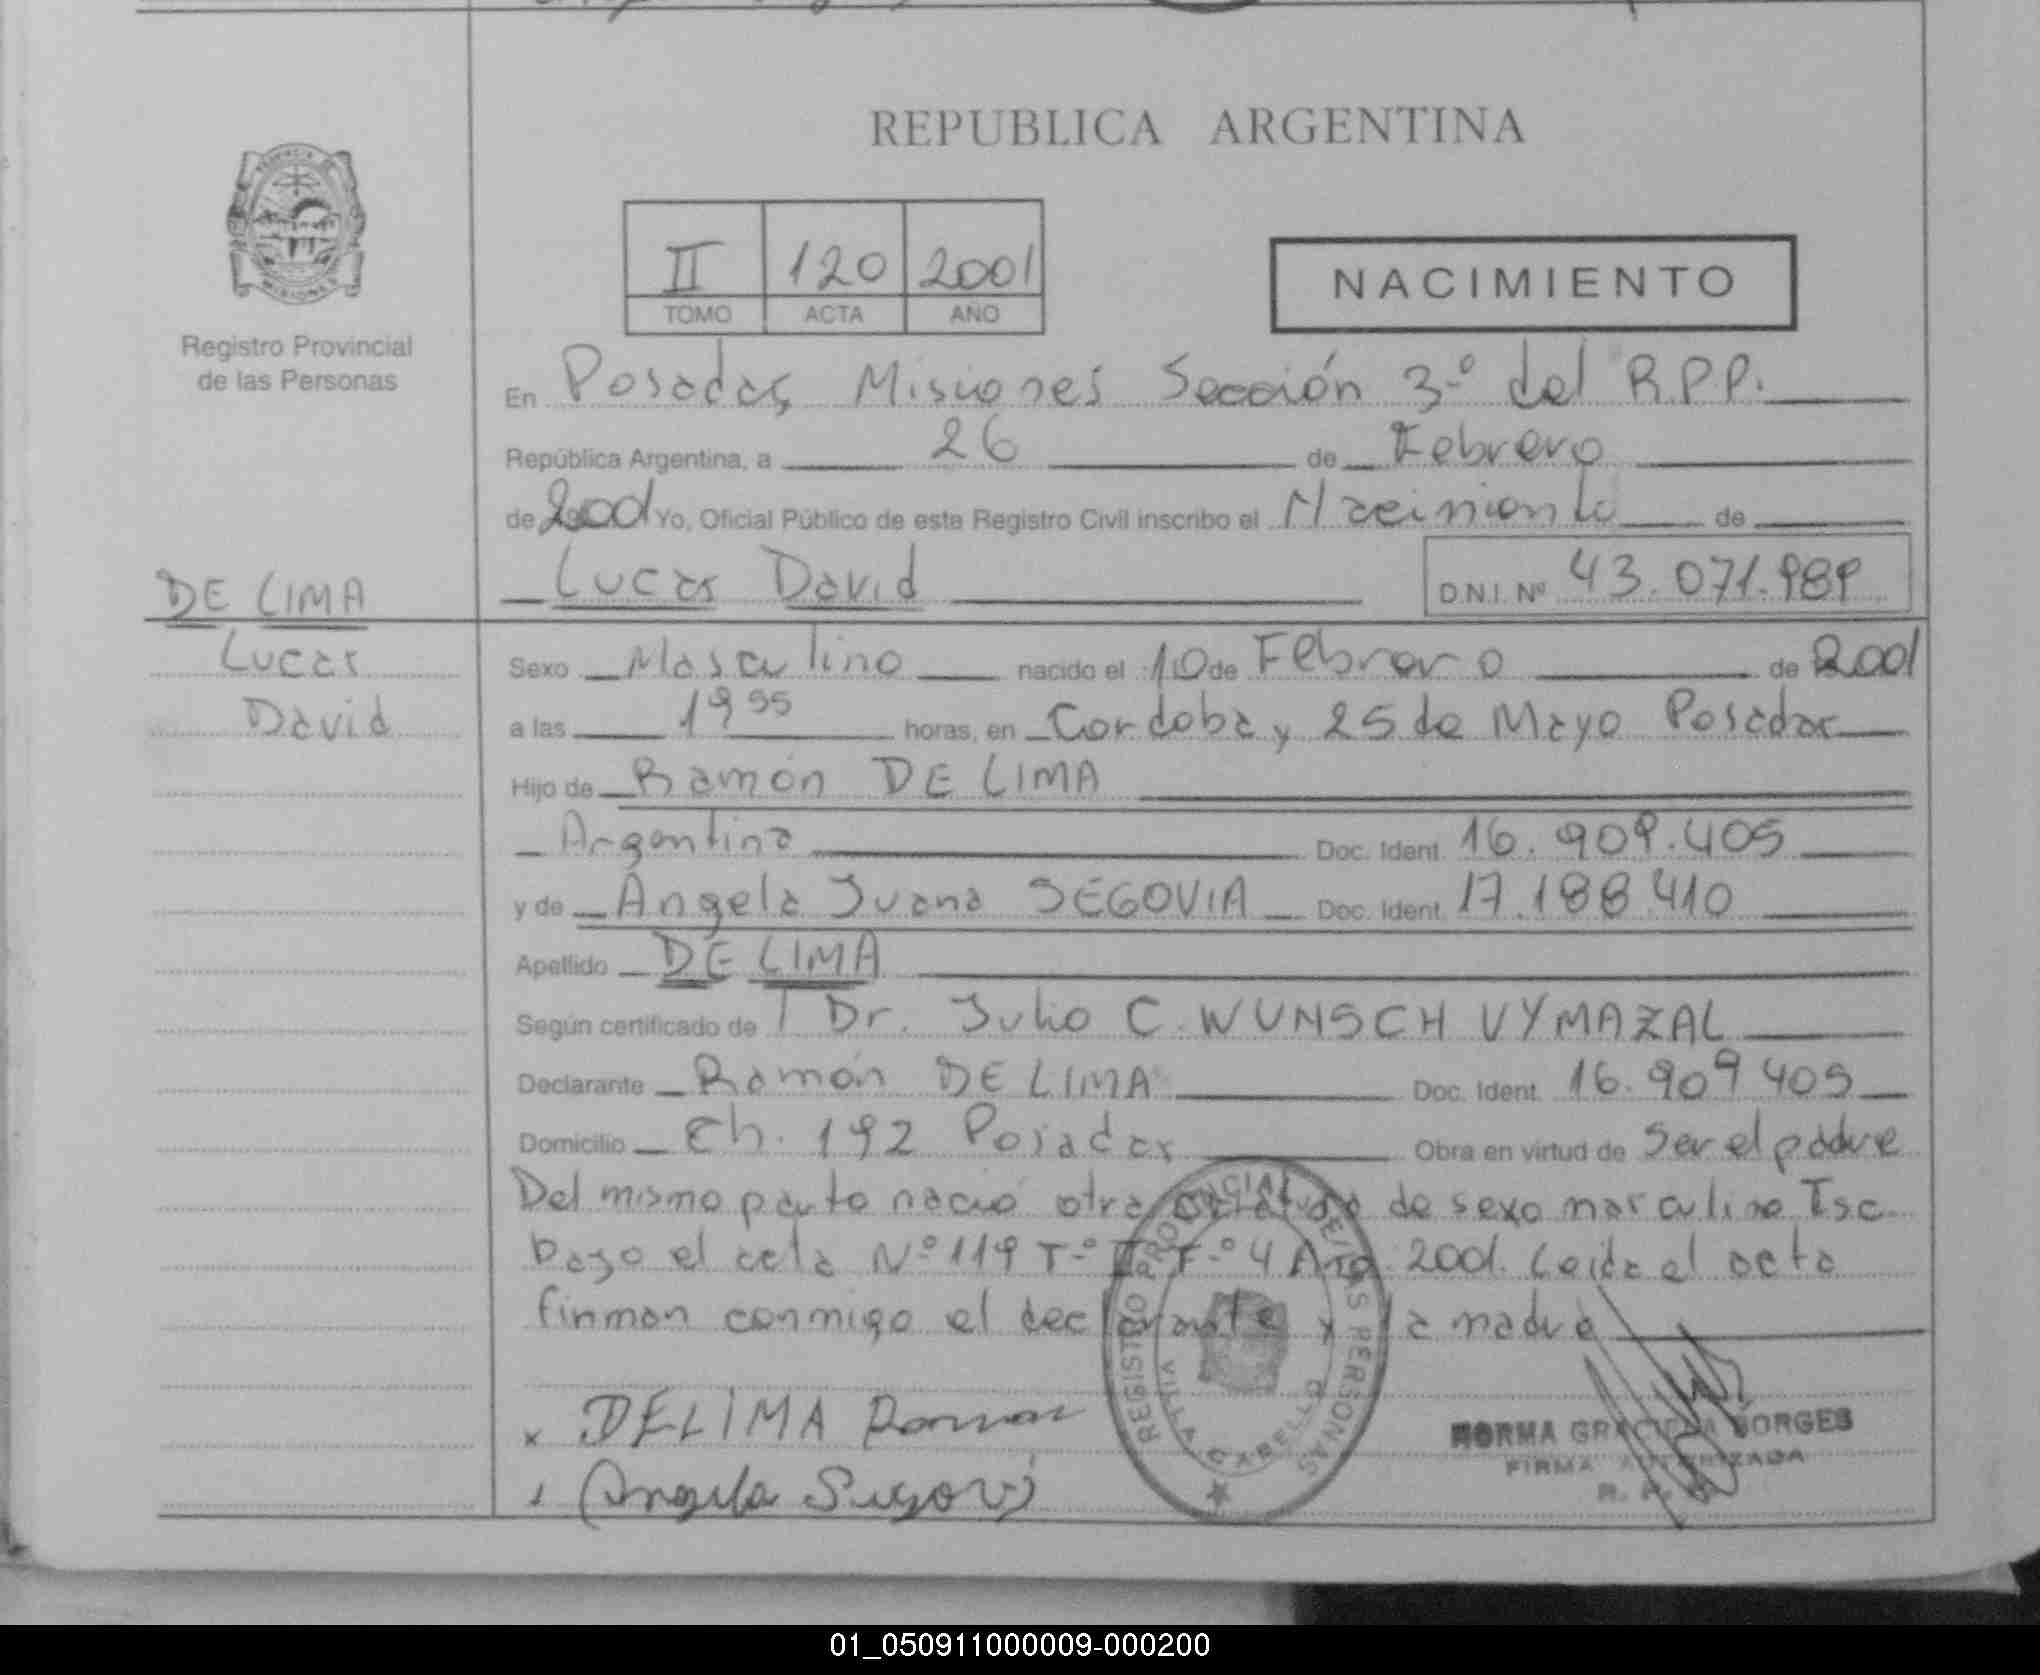 REPUBLICA ARGENTINA
Registro Provincial
de las Personas
II 120 2001
TOMO ACTA AÑO
NACIMIENTO
En Posadas, Misiones Sección 3-º del R.P.P.
República Argentina, a 26 de Febrero
de 2001 Yo, Oficial Público de este Registro Civil inscribo el Nacimiento de
DE LIMA
Lucas David D.N.I. Nº 43.071.989
Lucas
David
Sexo Masculino nacido el 10 de Febrero de 2001
a las 19 55 horas, en Cordoba y 25 de Mayo Posadas
Hijo de Ramón DE LIMA
Argentina Doc. Ident. 16.909.405
y de Angela Juana SEGOVIA Doc. Ident. 17.188.410
Apellido DE LIMA
Según certificado de Dr. Julio C. WUNSCH VYMAZAL
Declarante Ramón DE LIMA Doc. Ident. 16.909 405
Domicilio Ch. 192 Posadas Obra en virtud de Ser el padre
Del mismo parto nació otra criatura de sexo masculino Isc.
bajo el acta Nº 119 T-º II F-º 4 Año 2001. Leida el acta
firman conmigo el declarante y la madre
x DELIMA Ramon
Angela Segovi
REGISTRO PROVINCIAL DE LAS PERSONAS
VILLA CABELLO
NORMA GRACIELA BORGES
FIRMA AUTORIZADA
01_050911000009-000200